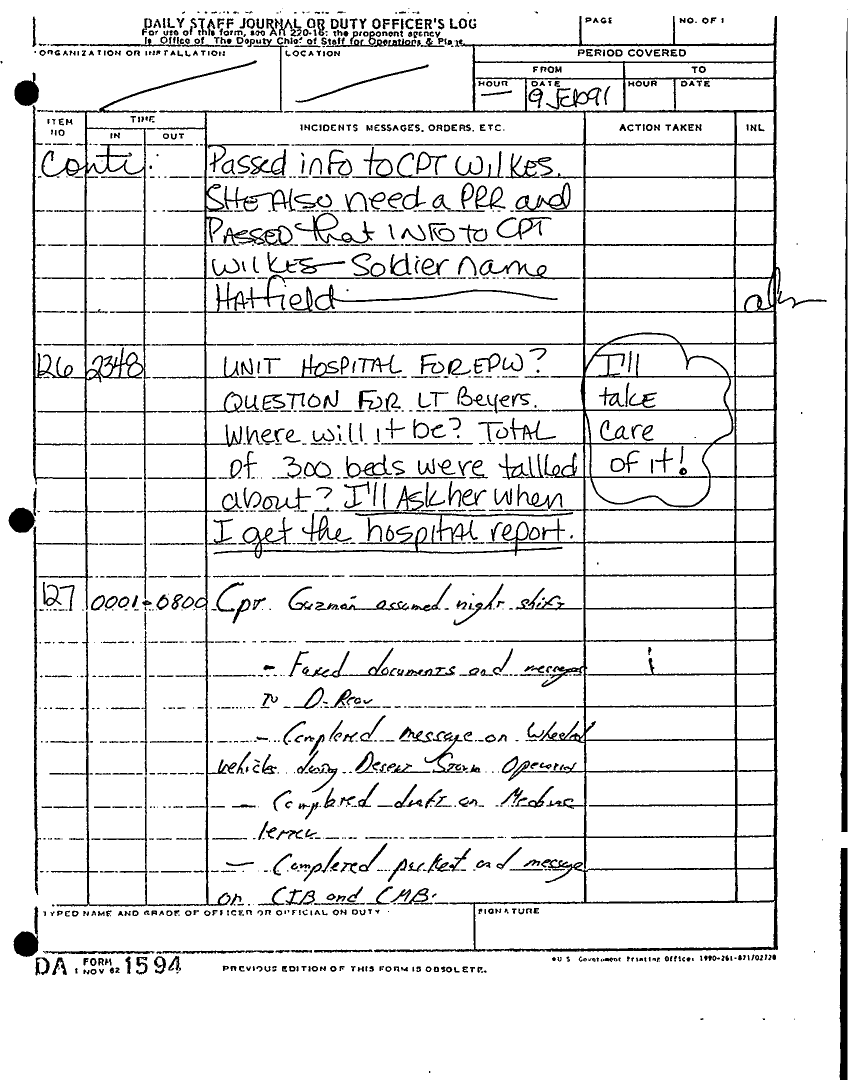 DAILY STAFF JOURNAL OR DUTY OFFICER'S LOG
For use of this form, see AR 220-15; the proponent agency
is Office of The Deputy Chief of Staff for Operations & Plans.
PAGE
NO. OF 1
ORGANIZATION OR INSTALLATION
LOCATION
PERIOD COVERED
FROM
TO
HOUR
DATE
HOUR
DATE
9 Feb 91
ITEM NO
TIME
IN
OUT
INCIDENTS MESSAGES, ORDERS, ETC.
ACTION TAKEN
INL
Conti. Passed info to CPT WILKES.
SHE Also need a PRR and
PASSED that INFO to CPT
WILKES - Soldier name
HAtfield
126 2348 UNIT HOSPITAL FOR EPW?
QUESTION FOR LT Beyers.
Where will it be? TOTAL
of 300 beds were tallked
about? I'll Ask her when
I get the hospital report.
I'll
take
care
of it!
127 0001-0800 Cpt. Guzmán assumed night shift
- Faxed documents and messages
to D-Rear
- Completed message on Wheeled
vehicles during Desert Storm Operation
- Completed draft on Medicine
letter
- Completed packet and message
on CIB and CMB.
TYPED NAME AND GRADE OF OFFICER OR OFFICIAL ON DUTY
SIGNATURE
DA FORM 1 NOV 62 1594
PREVIOUS EDITION OF THIS FORM IS OBSOLETE.
*U.S. Government Printing Office: 1990-261-871/02720